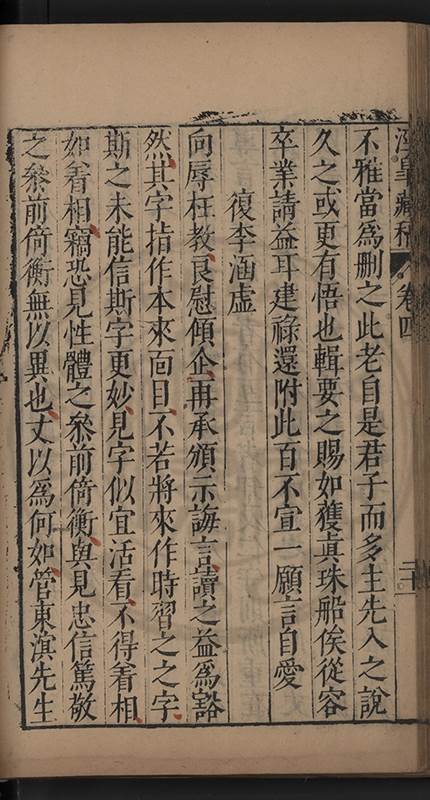 涇臯藏稿 卷四 二十
不雅當爲刪之此老自是君子而多主先入之說
久之或更有悟也輯要之賜如獲眞珠船俟從容
卒業請益耳建祿還附此百不宣一願言自愛
復李涵虛
向辱枉教良慰傾企再承頒示誨言讀之益爲豁
然其字指作本來面目不若將來作時習之之字
斯之未能信斯字更妙見字似宜活看不得着相
如着相竊恐見性體之叅前倚衡與見忠信篤敬
之叅前倚衡無以異也丈以爲何如管東溟先生